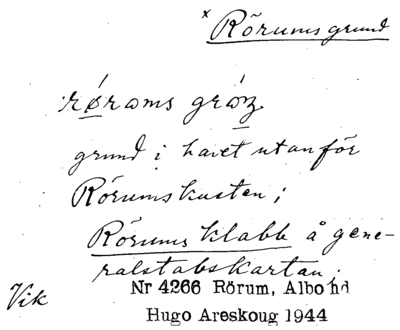 x Rörumsgrund
rørəms grəz
grund i havet utanför
Rörumskusten;
Rörums klabb å gene-
ralstabskartan;
Vik
Nr 4266 Rörum, Albo hd
Hugo Areskoug 1944